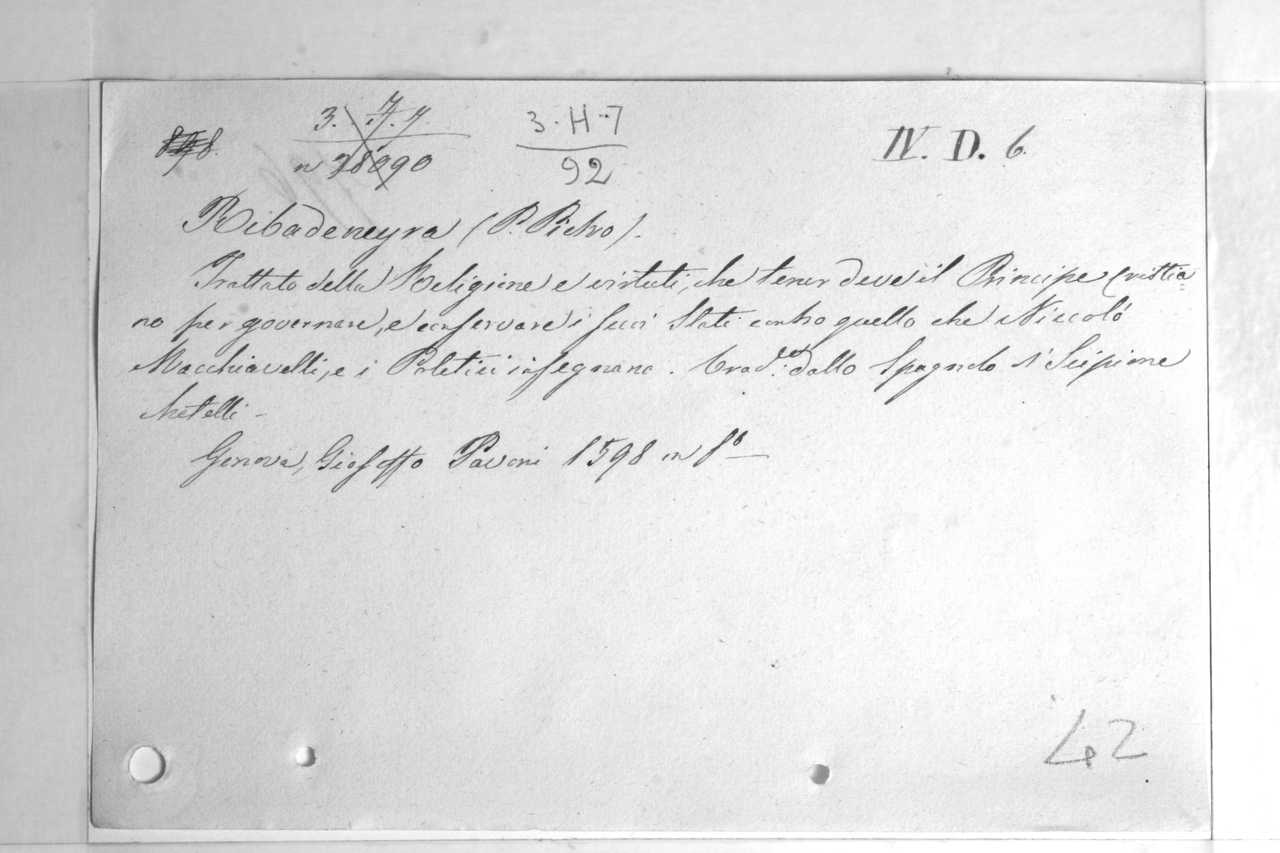 3. H. 7
92
IV. D. 6.
Ribadeneyra (P. Pietro).
Trattato della Religione e virtuti, che tener deve il Principe Cristia=
no per governare, e conservare i suoi Stati contro quello che Niccolò
Macchiavelli, e i Politici insegnano. Trad. dallo Spagnolo di Scipione
Metelli -
Genova, Gioseffo Pavoni 1598 in 8º
42